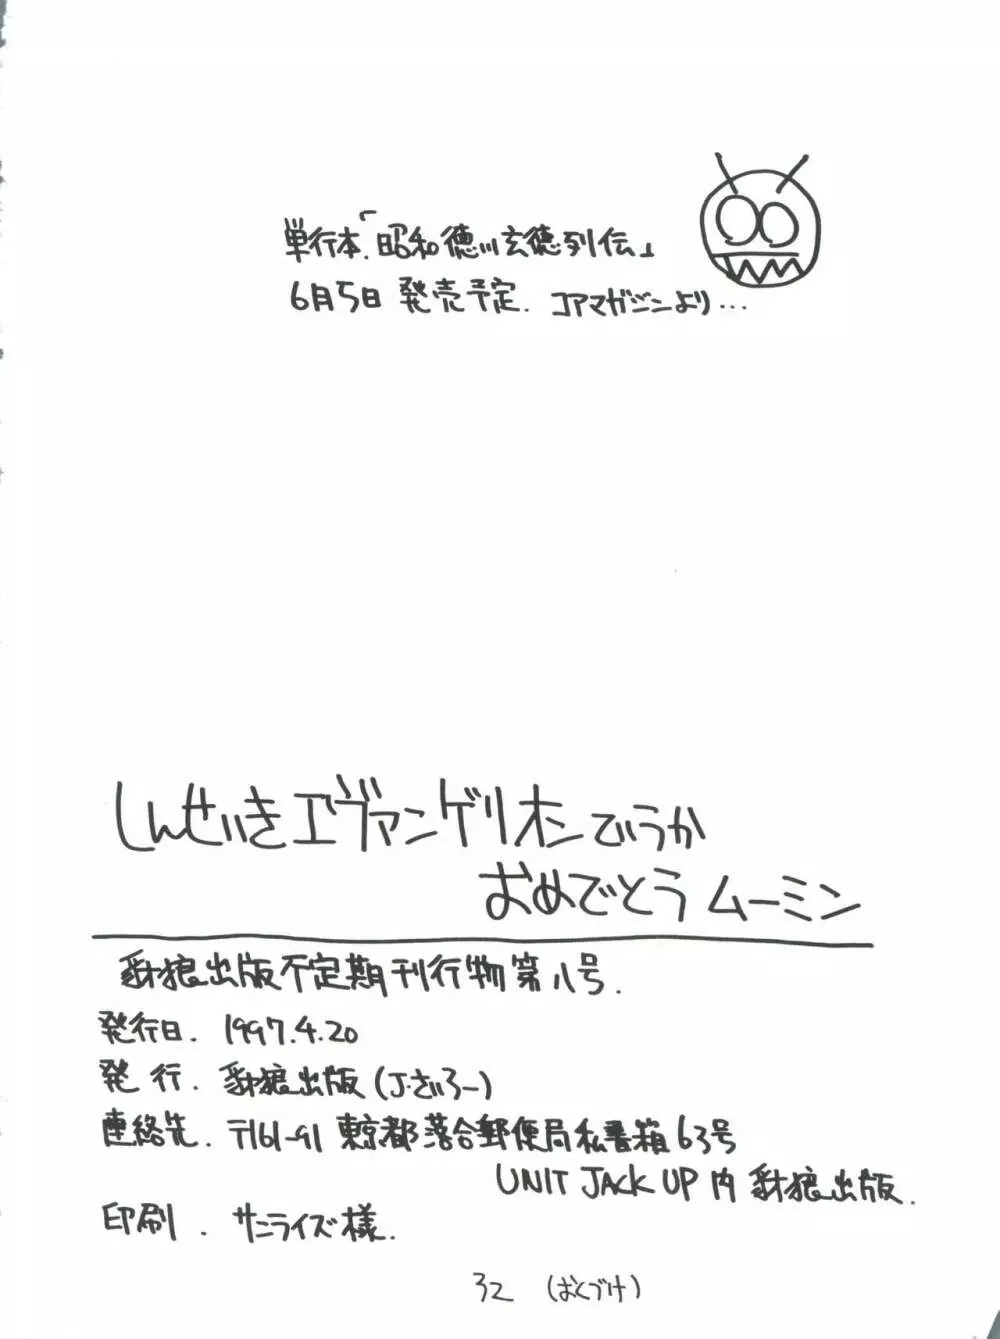 単行本「昭和徳川玄徳列伝」
6月5日 発売予定. コアマガジンより...
しんせいきエヴァンゲリオンてゆうか
おめでとう ムーミン
豺狼出版不定期刊行物第八号.
発行日. 1997.4.20
発 行. 豺狼出版(J.さいろー)
連絡先. 〒161-91 東京都落合郵便局私書箱63号
UNIT JACK UP内 豺狼出版.
印刷. サンライズ様.
32 (おくづけ)